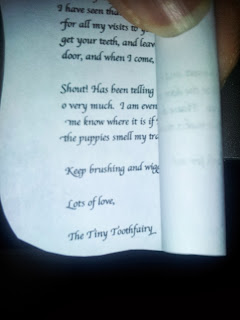 I have seen tha
for all my visits to y
get your teeth, and leav
door, and when I come,
Shout! Has been telling
o very much. I am even
me know where it is if
the puppies smell my tra
Keep brushing and wigg
Lots of love,
The Tiny Toothfairy